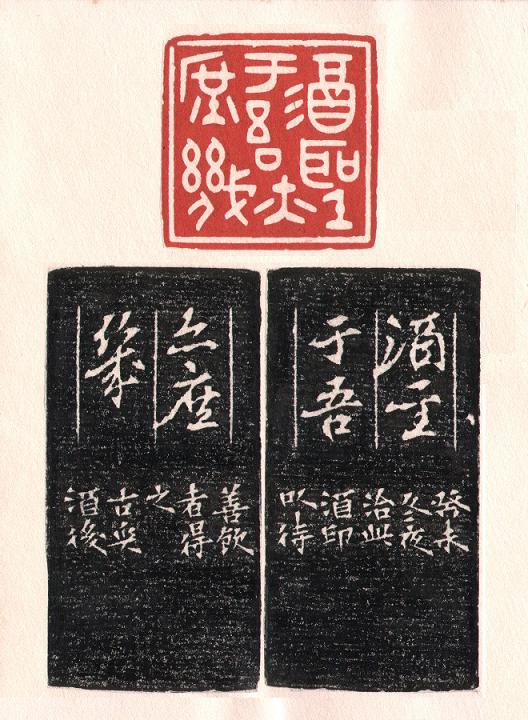 酒聖
于吾亦
庶幾
酒圣
于吾
癸未
冬夜
治此
酒印
以待
亦庶
幾
善飲
者得
之
古奐
酒後